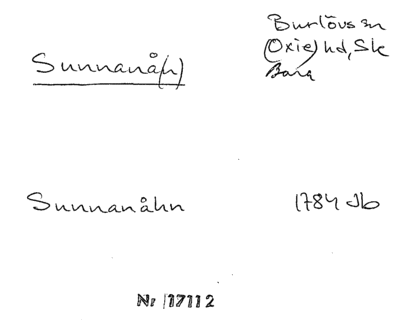 Sunnanå(n)
Burlövs sn
(Oxie) hd, Sk
Bara
Sunnanåhn
1784 Jb
Nr 17112